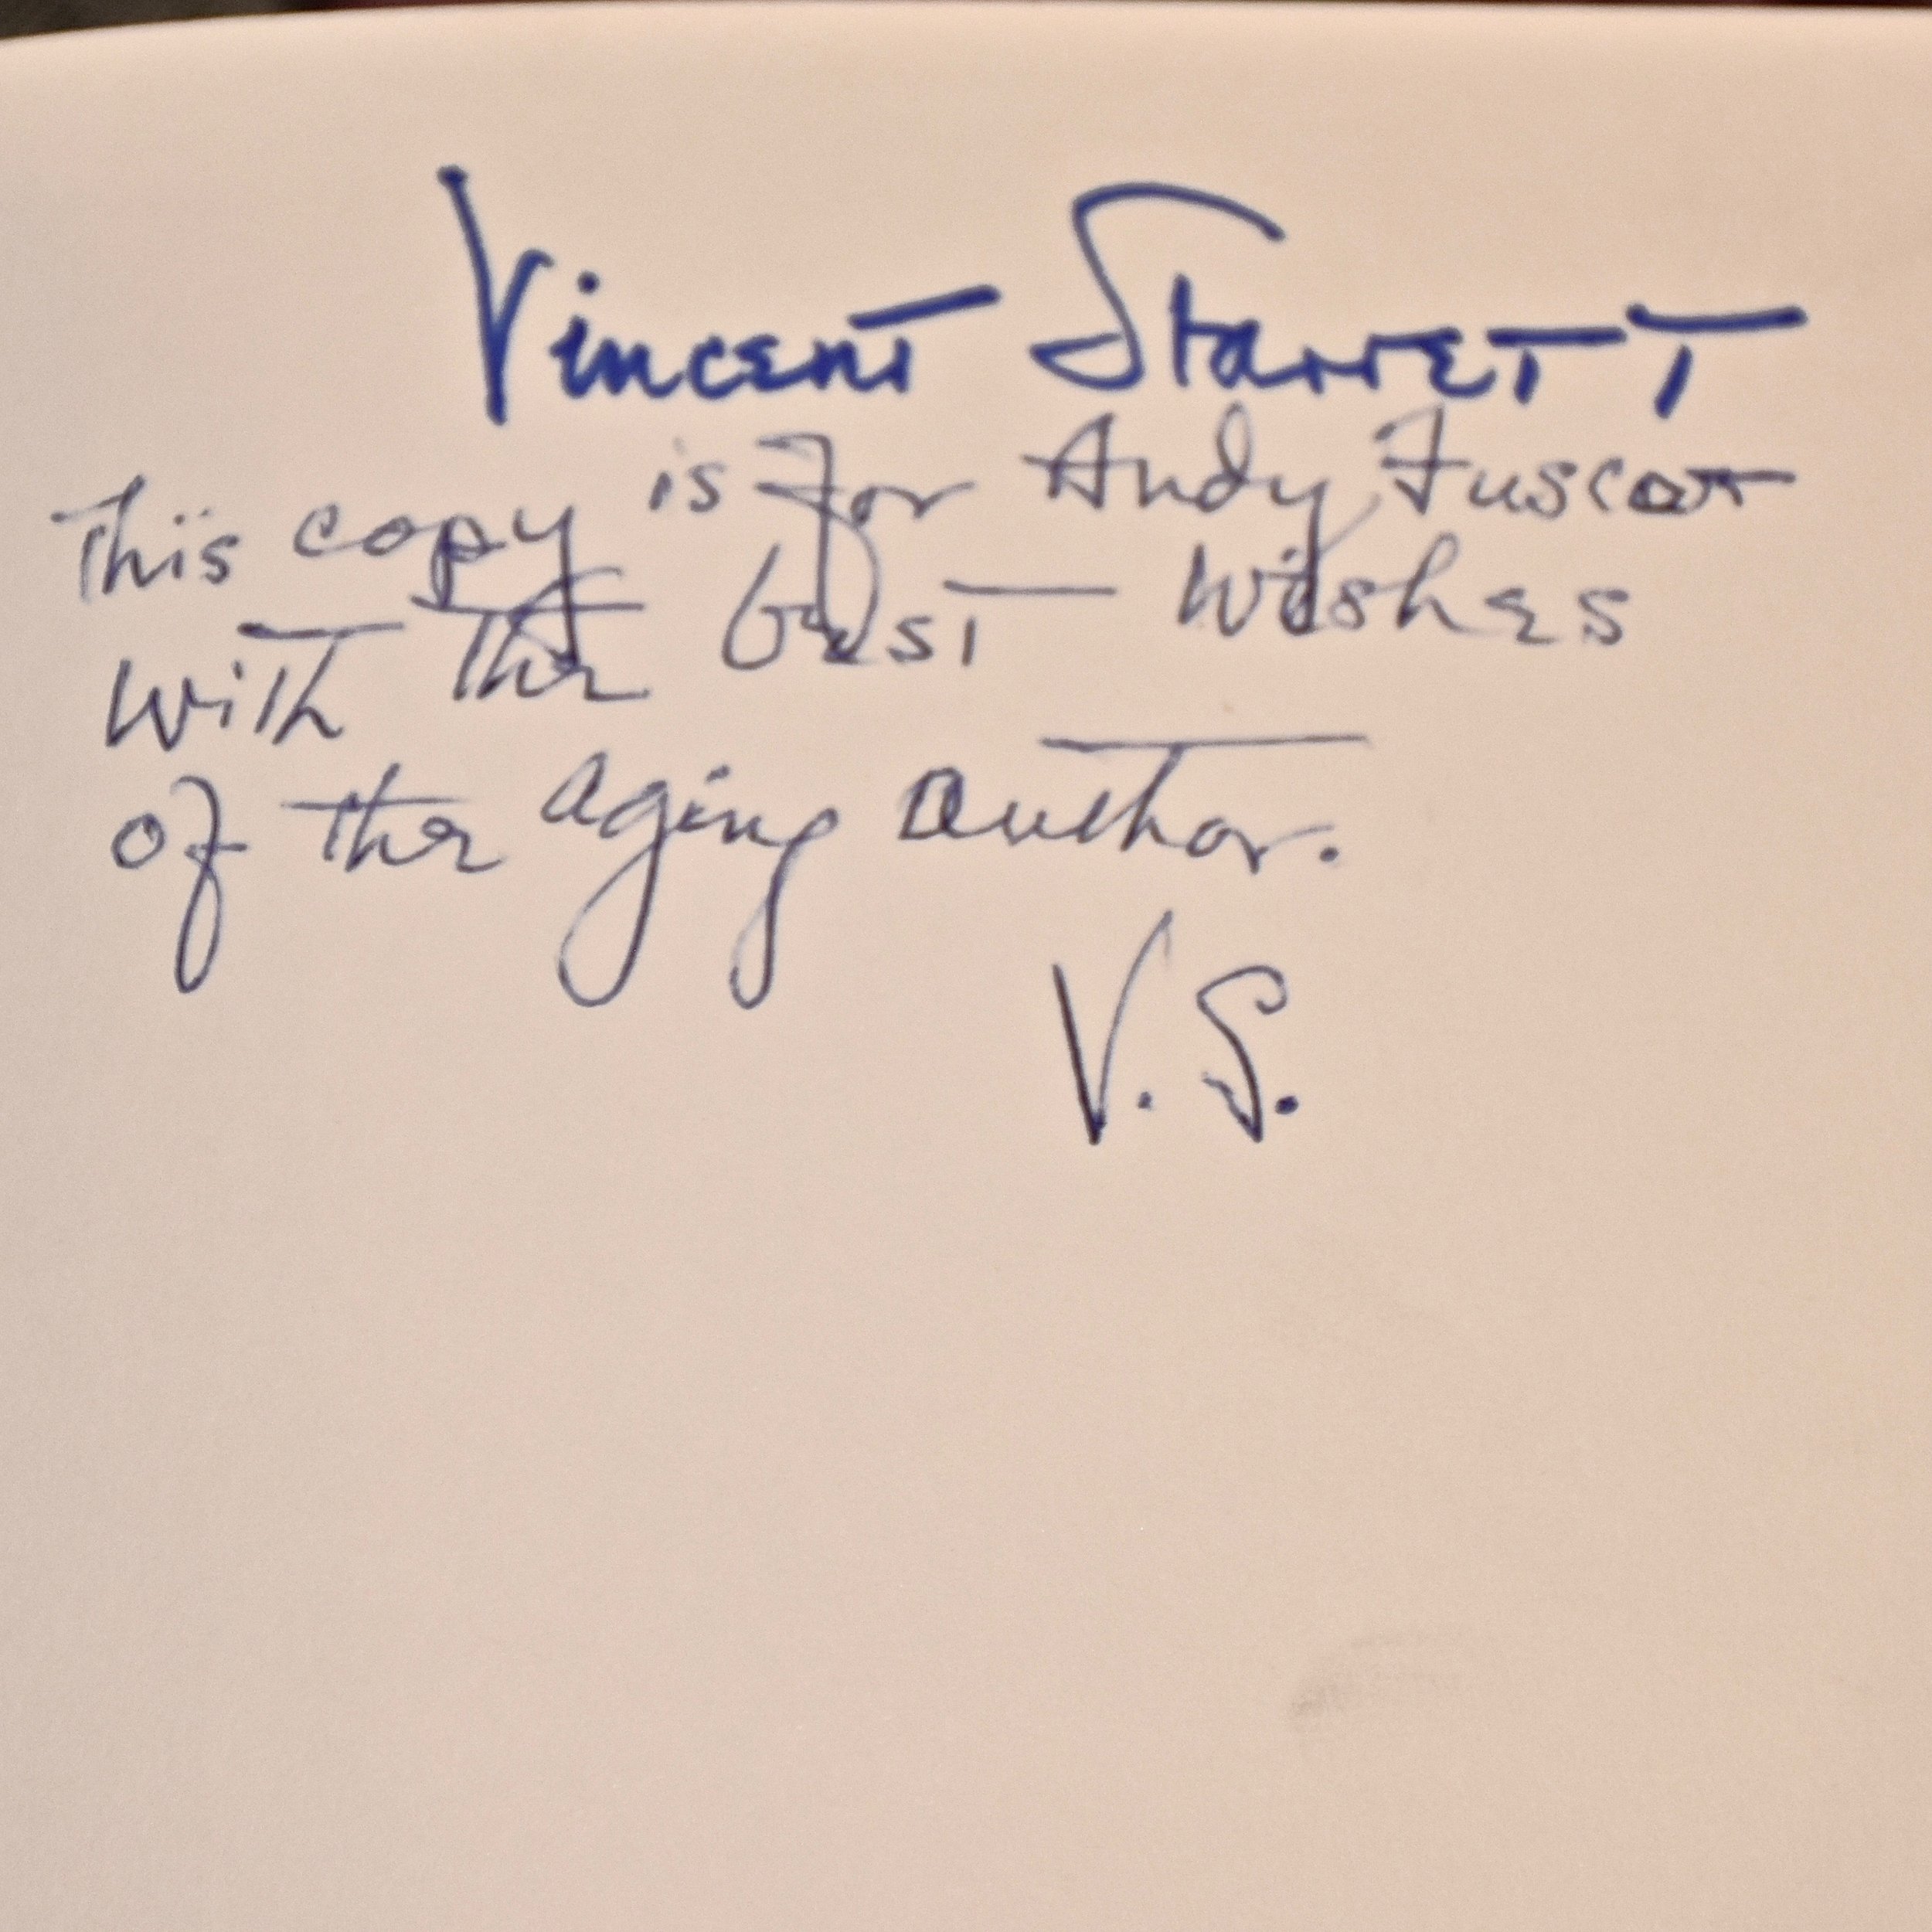 Vincent Starrett
This copy is for Andy
with the best wishes
of the aging author.
V.S.